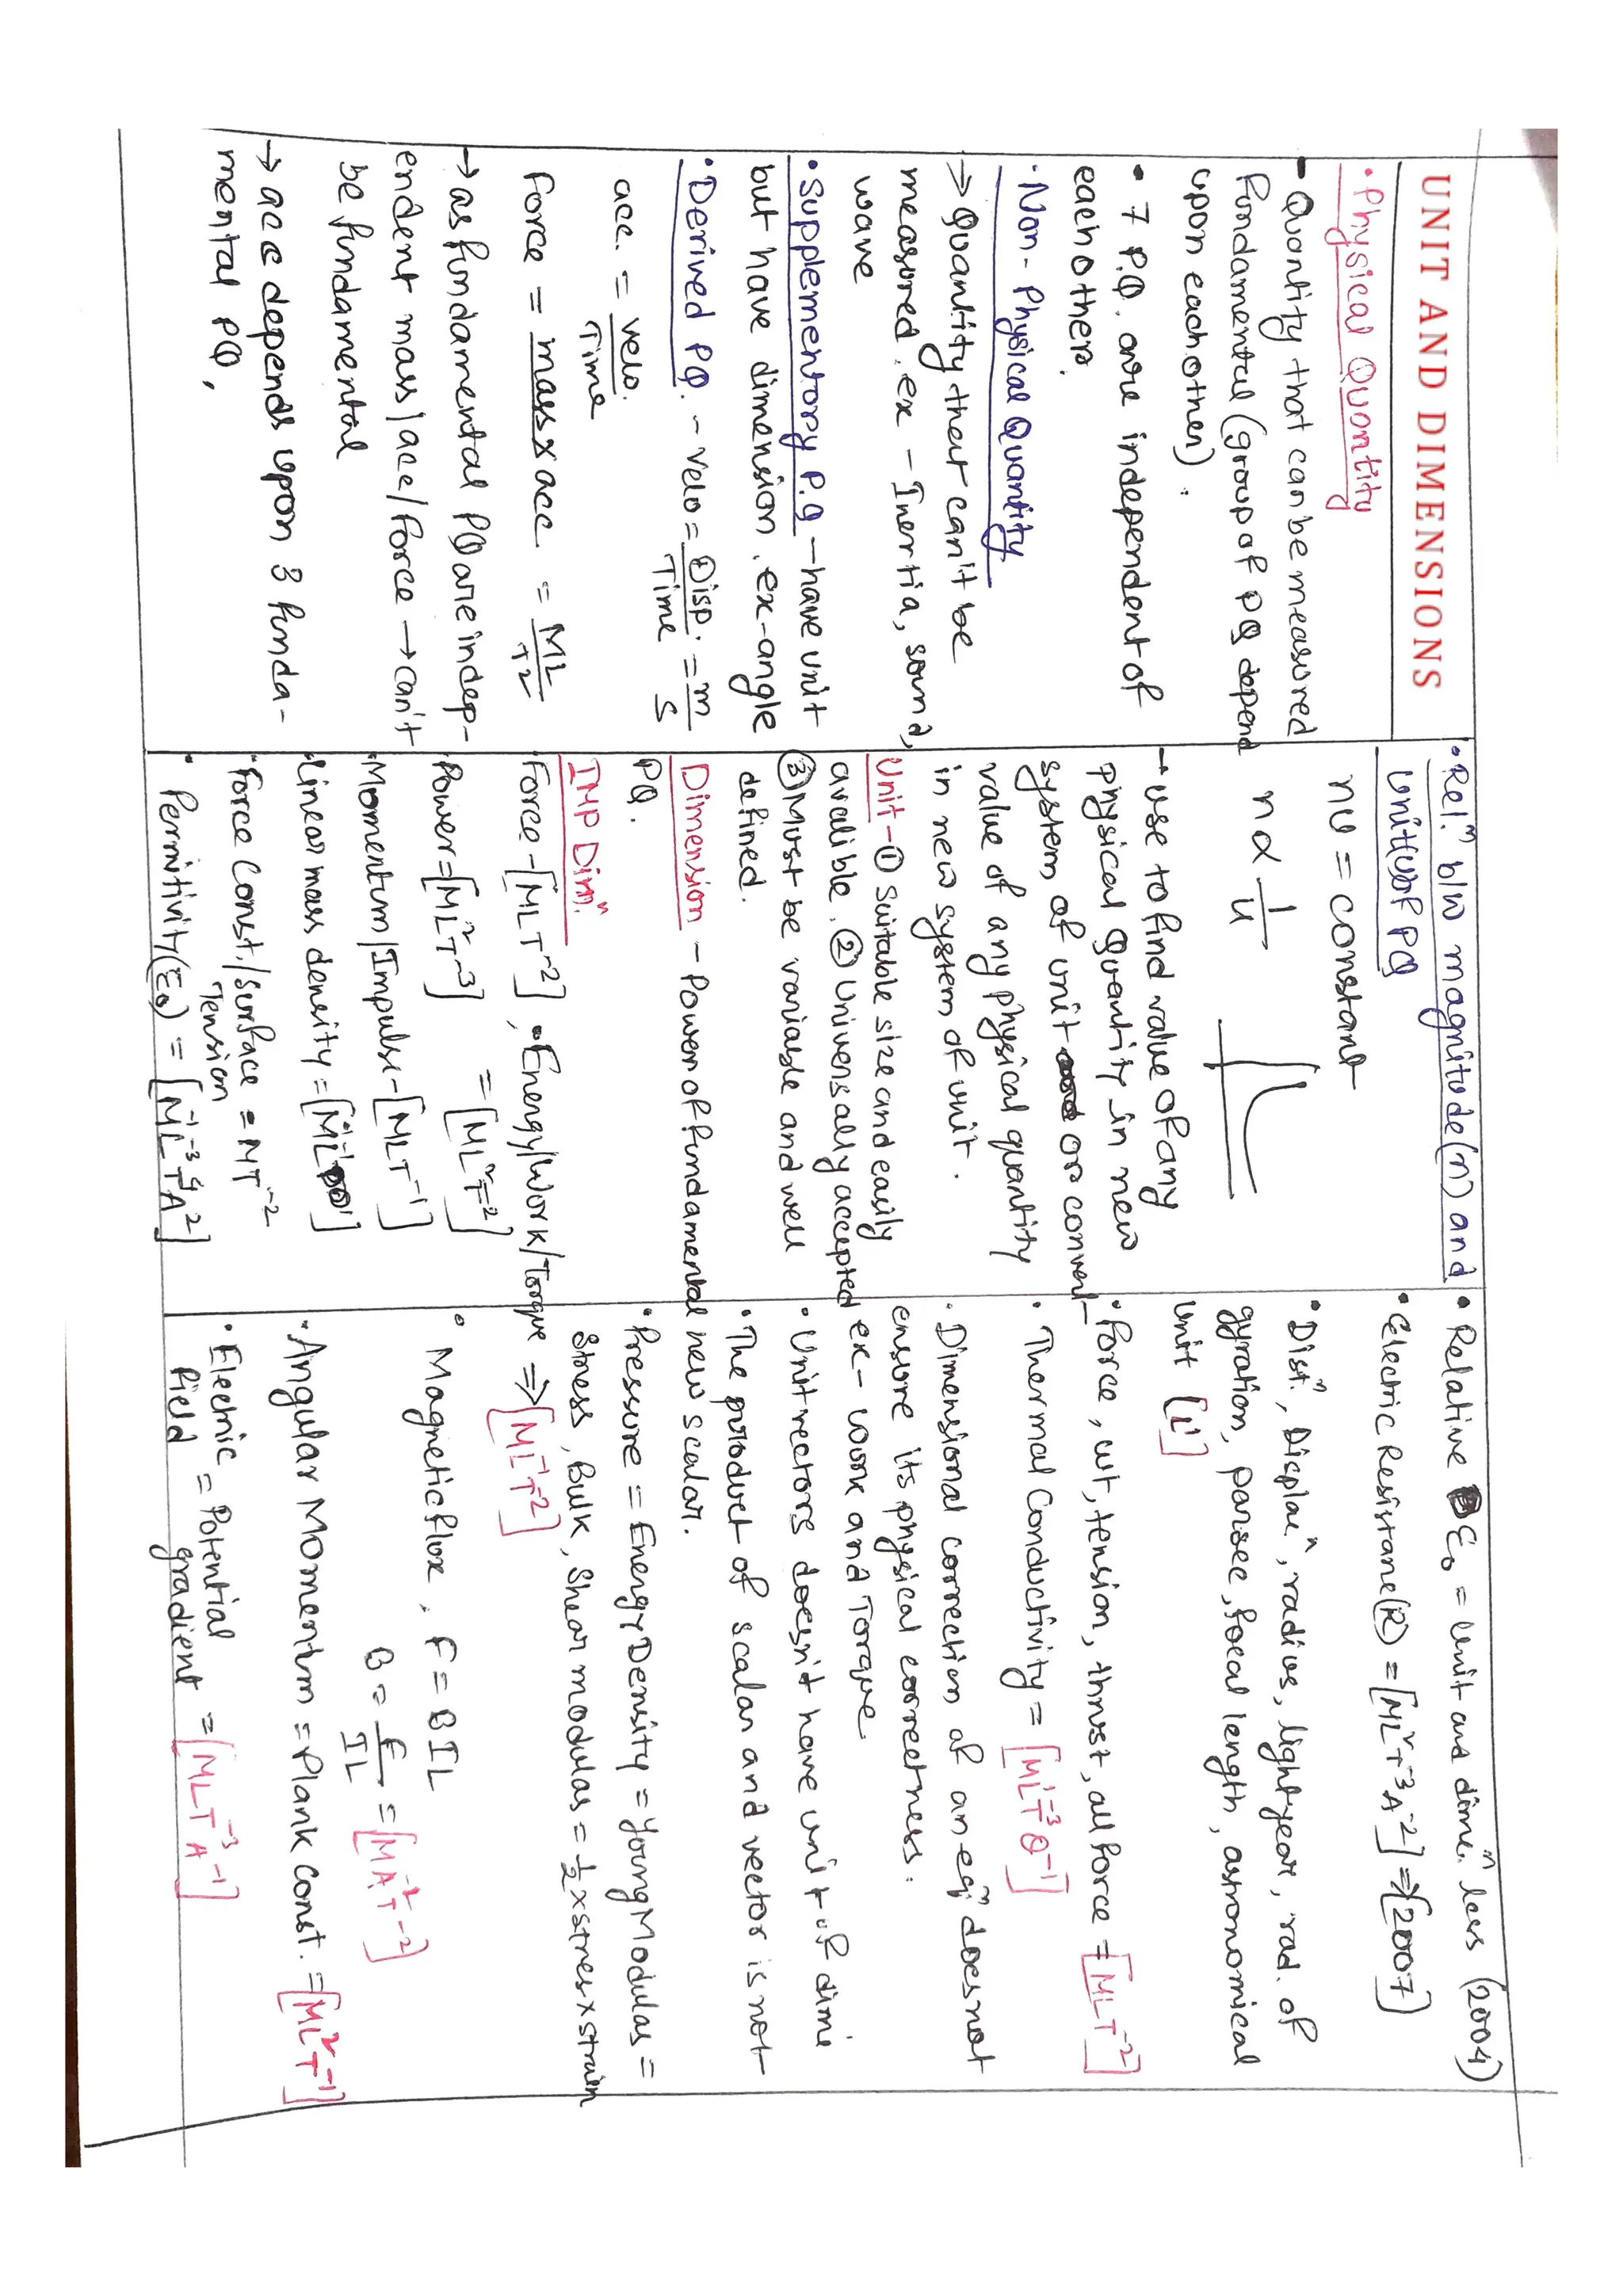 UNIT AND DIMENSIONS
• Physical Quantity
- Quantity that can be measured
Fundamental (group of PQ depend
upon each other).
• 7 P.Q. are independent of
each other.
• Non-Physical Quantity
→ Quantity that can't be
measured. ex - Inertia, sound,
wave
• Supplementory P.Q - have unit
but have dimension. ex-angle
• Derived PQ. - velo = Disp. / Time = m / s
acc. = velo. / Time
force = mass x acc. = ML / T2
→ as fundamental PQ are indep-
endent mass/acc/force → can't
be fundamental
→ acc depends upon 3 funda-
mental PQ,
• Relⁿ. b/w magnitude(n) and
unit(u) of PQ
nu = constant
n α 1/u
→ use to find value of any
physical Quantity in new
system of unit or convert
value of any physical quantity
in new system of unit.
Unit - ① Suitable size and easily
avalible. ② Universally accepted
③ Must be variable and well
defined.
Dimension - Power of fundamental
PQ.
IMP Dimⁿ.
• Force - [MLT⁻²], • Energy/Work/Torque
= [ML²T⁻²]
• Power = [ML²T⁻³]
• Momentum/Impulse - [MLT⁻¹]
• Linear mass density = [M¹L⁻¹]
• Force Const./surface Tension = MT⁻²
• Permitivity(ε₀) = [M⁻¹L⁻³T⁴A²]
• Relative ε₀ = unit and dimeⁿ. less (2004)
• Electric Resistane(R) = [ML²T⁻³A⁻²] ⇒ [2007]
• Distⁿ., Displaⁿ, radius, lightyear, rad. of
gyration, parsec, focal length, astronomical
unit [L¹]
• Force, wt, tension, thrust, all force = [MLT⁻²]
• Thermal Conductivity = [ML¹T⁻³θ⁻¹]
• Dimensional correction of an eqⁿ does not
ensure its physical correctness.
ex - work and Torque
• Unit vectors doesn't have unit of dime
• The product of scalar and vector is not
new scalar.
• Pressure = Energy Density = Young Modulas =
Stress, Bulk, Shear modulas = ½ x stress x strain
⇒ [ML⁻¹T⁻²]
• Magnetic flux. F = BIL
B = F / IL = [MA⁻¹T⁻²]
• Angular Momentum = Plank const. = [ML²T⁻¹]
• Electric field = Potential gradient = [MLT⁻³A⁻¹]